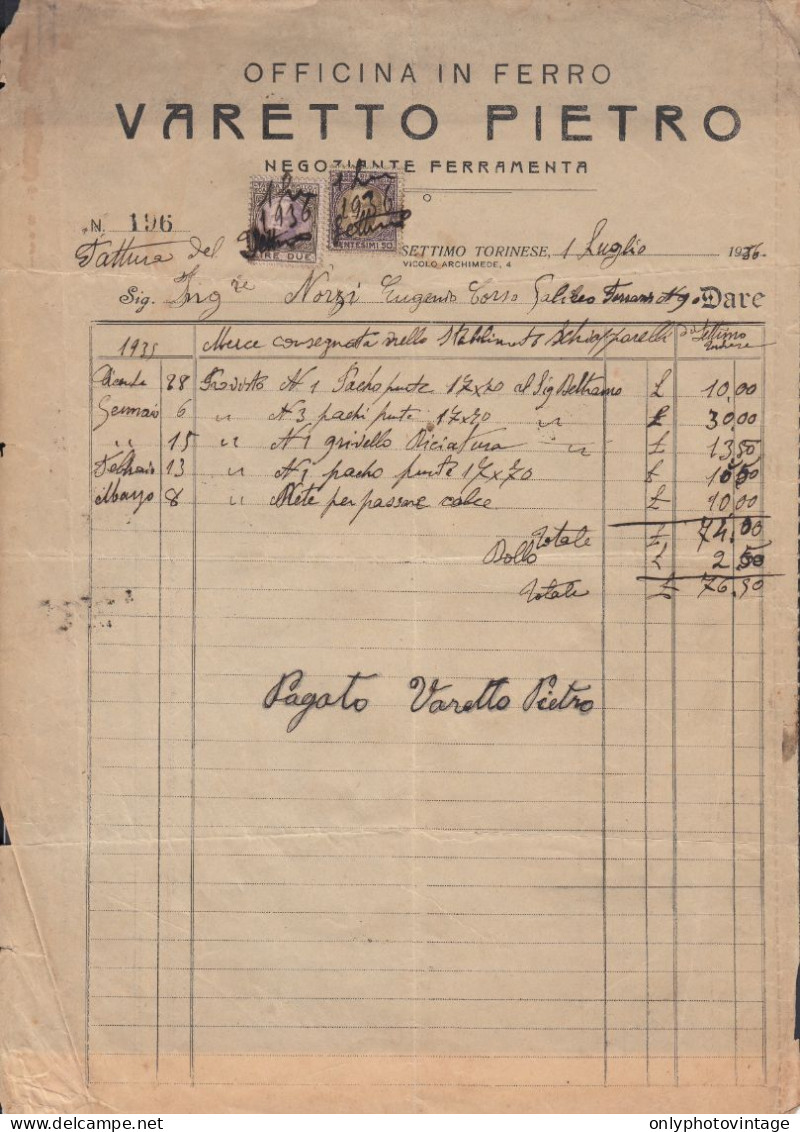 OFFICINA IN FERRO
VARETTO PIETRO
NEGOZIANTE FERRAMENTA
1 Lu 1936
LIRE DUE
1 Lu 1936 Settimo
CENTESIMI 50
N. 196
Fattura del
SETTIMO TORINESE, 1 Luglio 1936
VICOLO ARCHIMEDE, 4
Sig. Ing re Norzi Eugenio Corso Galileo Ferraris N 90 Dare
1935 Merce consegnata nello Stabilimento Schiapparelli di Settimo
28 Provisto N 1 Pacho punte 17x70 al Sig Beltramo £ 10,00
Gennaio 6 " N 3 pachi punte 17x70 " £ 30,00
" 15 " N 1 grivello " £ 13,50
Febbraio 13 " N 1 pacho punte 17x70 £ 10,50
Marzo 8 " Rete per passare calce £ 10,00
Totale £ 74,00
Bollo £ 2,50
Totale £ 76,50
Pagato Varetto Pietro
onlyphotovintage.com